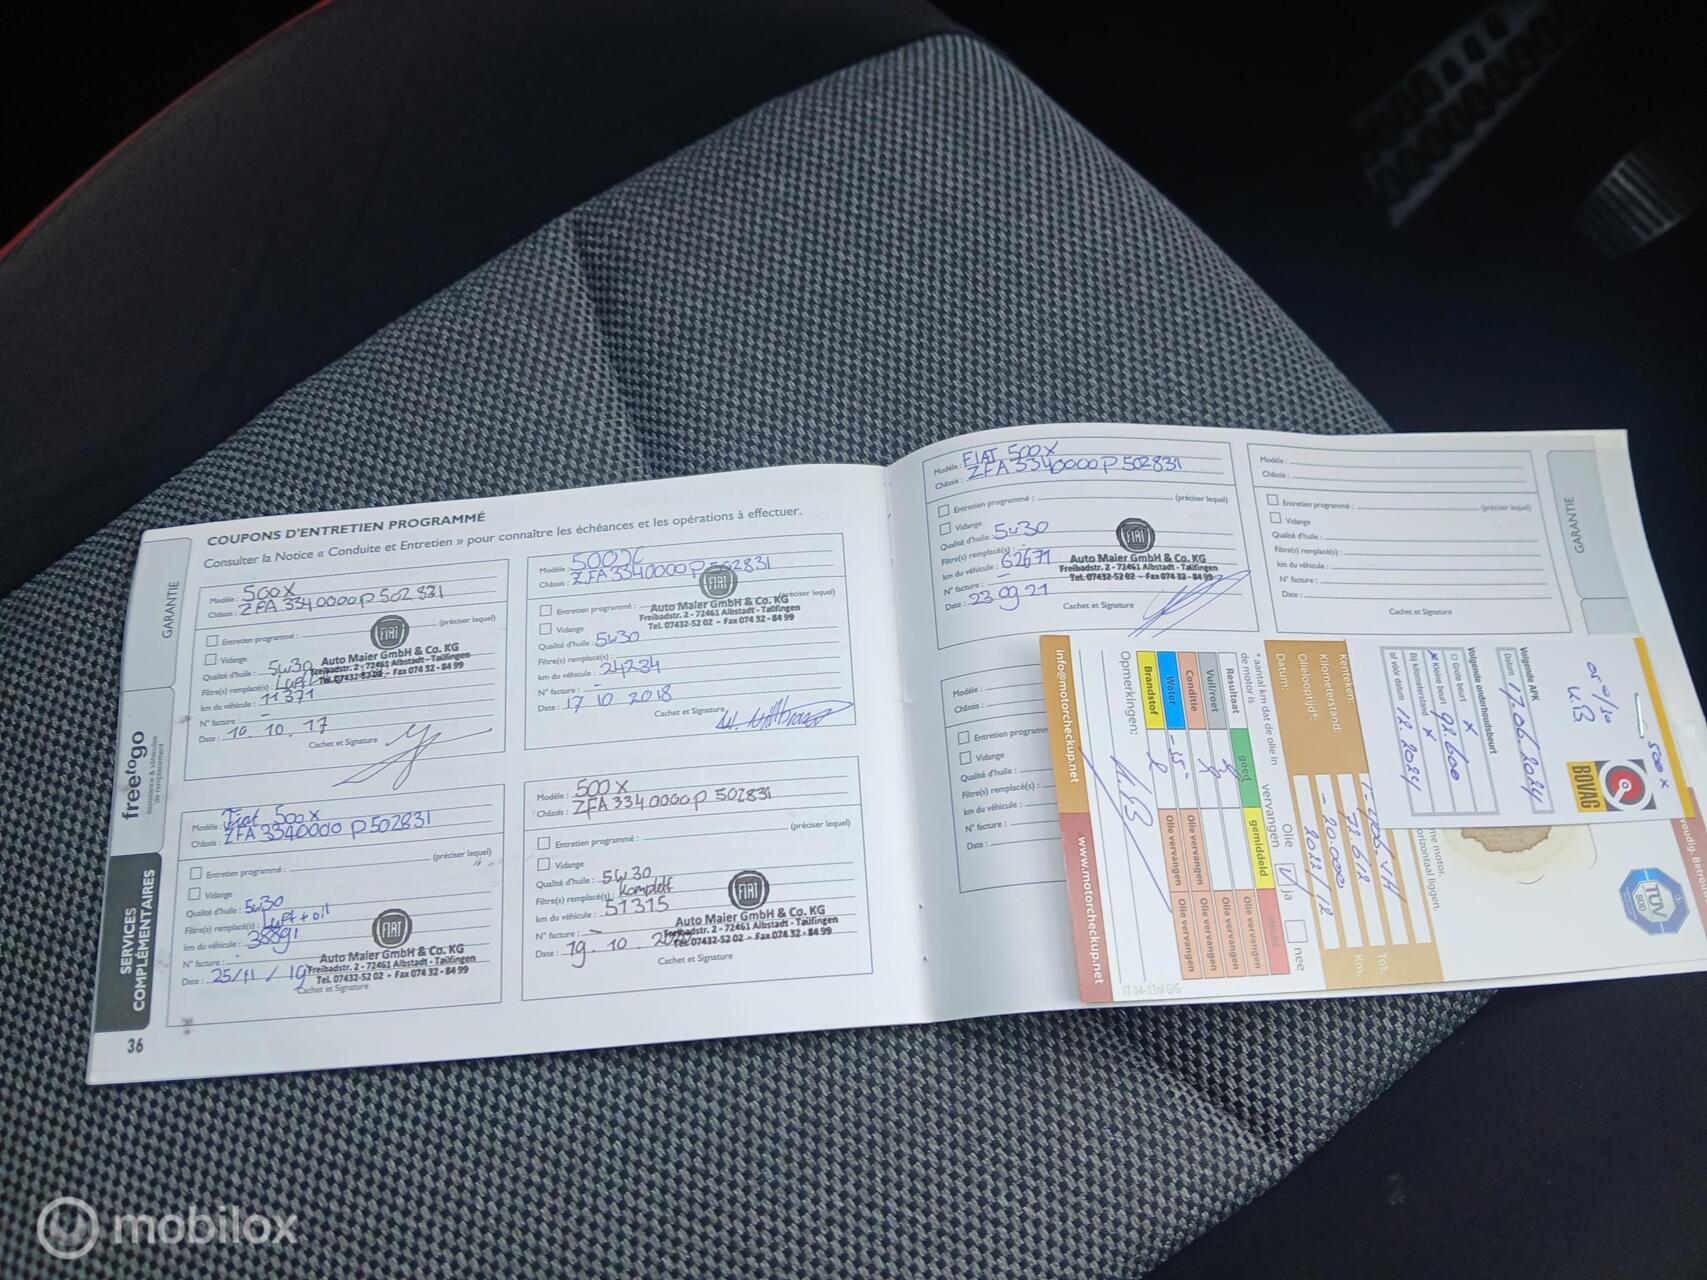 COUPONS D'ENTRETIEN PROGRAMMÉ
Consulter la Notice « Conduite et Entretien » pour connaître les échéances et les opérations à effectuer.
Modèle : 500X
Châssis : ZFA3340000P502831
Entretien programmé : (préciser lequel)
Vidange
Qualité d'huile : 5w30
Filtre(s) remplacé(s) :
km du véhicule : 11371
N° facture : -
Date : 10.10.17
Cachet et Signature
FIAT
Auto Maier GmbH & Co. KG
Freibadstr. 2 - 72461 Albstadt - Tailfingen
Tel. 07432-52 02 - Fax 074 32 - 84 99
Modèle : 500X
Châssis : ZFA3340000P502831
Entretien programmé : (préciser lequel)
Vidange
Qualité d'huile : 5w30
Filtre(s) remplacé(s) :
km du véhicule : 24234
N° facture : -
Date : 17 10 2018
Cachet et Signature
FIAT
Auto Maier GmbH & Co. KG
Freibadstr. 2 - 72461 Albstadt - Tailfingen
Tel. 07432-52 02 - Fax 074 32 - 84 99
Modèle : Fiat 500X
Châssis : ZFA3340000P502831
Entretien programmé : (préciser lequel)
Vidange
Qualité d'huile : 5w30
Filtre(s) remplacé(s) : Luft + oil
km du véhicule : 38891
N° facture : -
Date : 25/11/19
Cachet et Signature
FIAT
Auto Maier GmbH & Co. KG
Freibadstr. 2 - 72461 Albstadt - Tailfingen
Tel. 07432-52 02 - Fax 074 32 - 84 99
Modèle : 500X
Châssis : ZFA3340000P502831
Entretien programmé : (préciser lequel)
Vidange
Qualité d'huile : 5w30
Filtre(s) remplacé(s) : komplett
km du véhicule : 51315
N° facture : -
Date : 19.10.
Cachet et Signature
FIAT
Auto Maier GmbH & Co. KG
Freibadstr. 2 - 72461 Albstadt - Tailfingen
Tel. 07432-52 02 - Fax 074 32 - 84 99
GARANTIE
freetogo
assistance & véhicules
de remplacement
SERVICES
COMPLÉMENTAIRES
36
Modèle : FIAT 500X
Châssis : ZFA3340000P502831
Entretien programmé : (préciser lequel)
Vidange
Qualité d'huile : 5w30
Filtre(s) remplacé(s) : -
km du véhicule : 62671
N° facture : -
Date : 23 09 21
Cachet et Signature
FIAT
Auto Maier GmbH & Co. KG
Freibadstr. 2 - 72461 Albstadt - Tailfingen
Tel. 07432-52 02 - Fax 074 32 - 84 99
Modèle :
Châssis :
Entretien programmé : (préciser lequel)
Vidange
Qualité d'huile :
Filtre(s) remplacé(s) :
km du véhicule :
N° facture :
Date :
Cachet et Signature
GARANTIE
Modèle :
Châssis :
Entretien programmé
Vidange
Qualité d'huile :
Filtre(s) remplacé(s) :
km du véhicule :
N° facture :
Date :
500 x
BOVAG
Volgende APK
Datum 17.06.2024
Volgende onderhoudsbeurt
Grote beurt x
x Kleine beurt
Bij kilometerstand x 92.600
of vóór datum 12.2024
info@motorcheckup.net
www.motorcheckup.net
Kenteken:
Kilometerstand: 72612 Km.
Olielooptijd*: - 20.000
Datum: 2022/12
* aantal km dat de olie in
de motor is
Olie
vervangen
ja
nee
Resultaat goed gemiddeld slecht
Vuil/roet Olie vervangen Olie vervangen
Conditie Olie vervangen Olie vervangen
Water Olie vervangen Olie vervangen
Brandstof
Opmerkingen:
TÜV
SÜD
horizontaal liggen.
1T 04-13nl GIG
mobilox